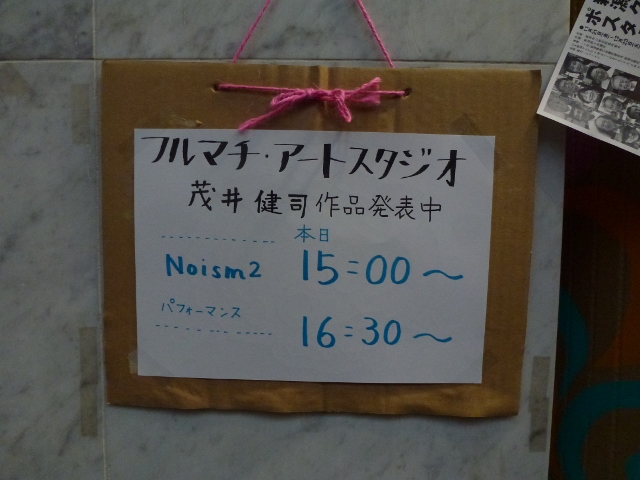 フルマチ・アートスタジオ
茂井健司作品発表中
本日
Noism2 15:00~
パフォーマンス 16:30~
ポスタ